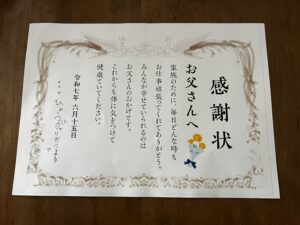 感謝状
お父さんへ
家族のために、毎日どんな時も
お仕事頑張ってくれてありがとう。
みんなが幸せでいられるのは、
お父さんのおかげです。
これからも体に気をつけて
健康でいてください。
令和七年六月十五日